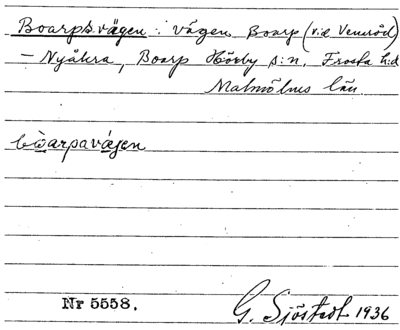 Boarpsvägen : vägen Boarp (vid Vennröd)
— Nyåkra, Boarp Hörby s:n, Frosta h:d
Malmöhus län
bòarpavägen
Nr 5558. G. Sjöstedt 1936